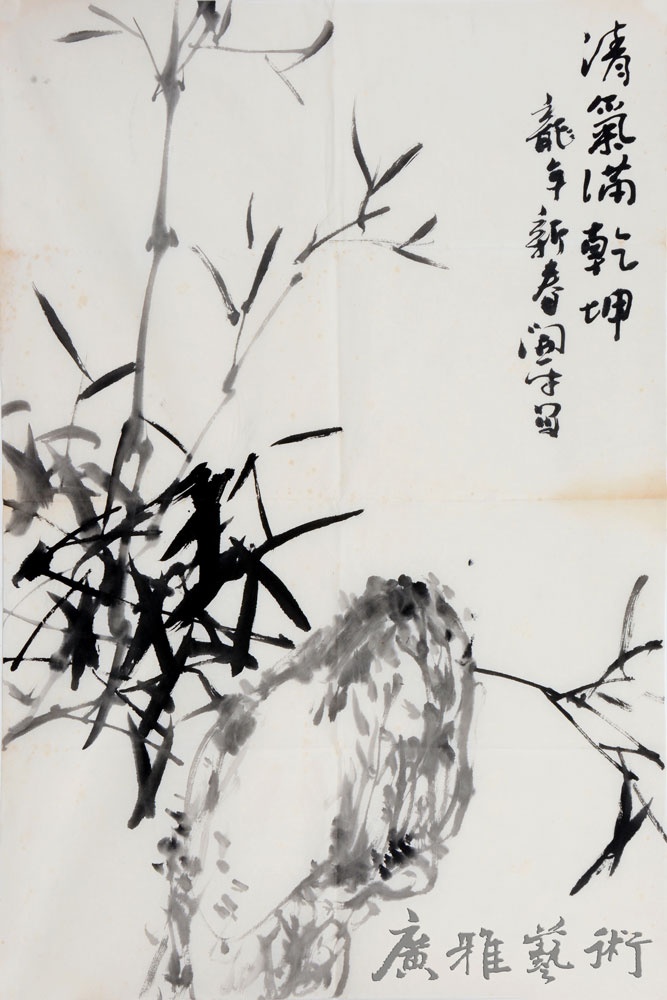 清氣滿乾坤
龍年新春閻平写
廣雅藝術